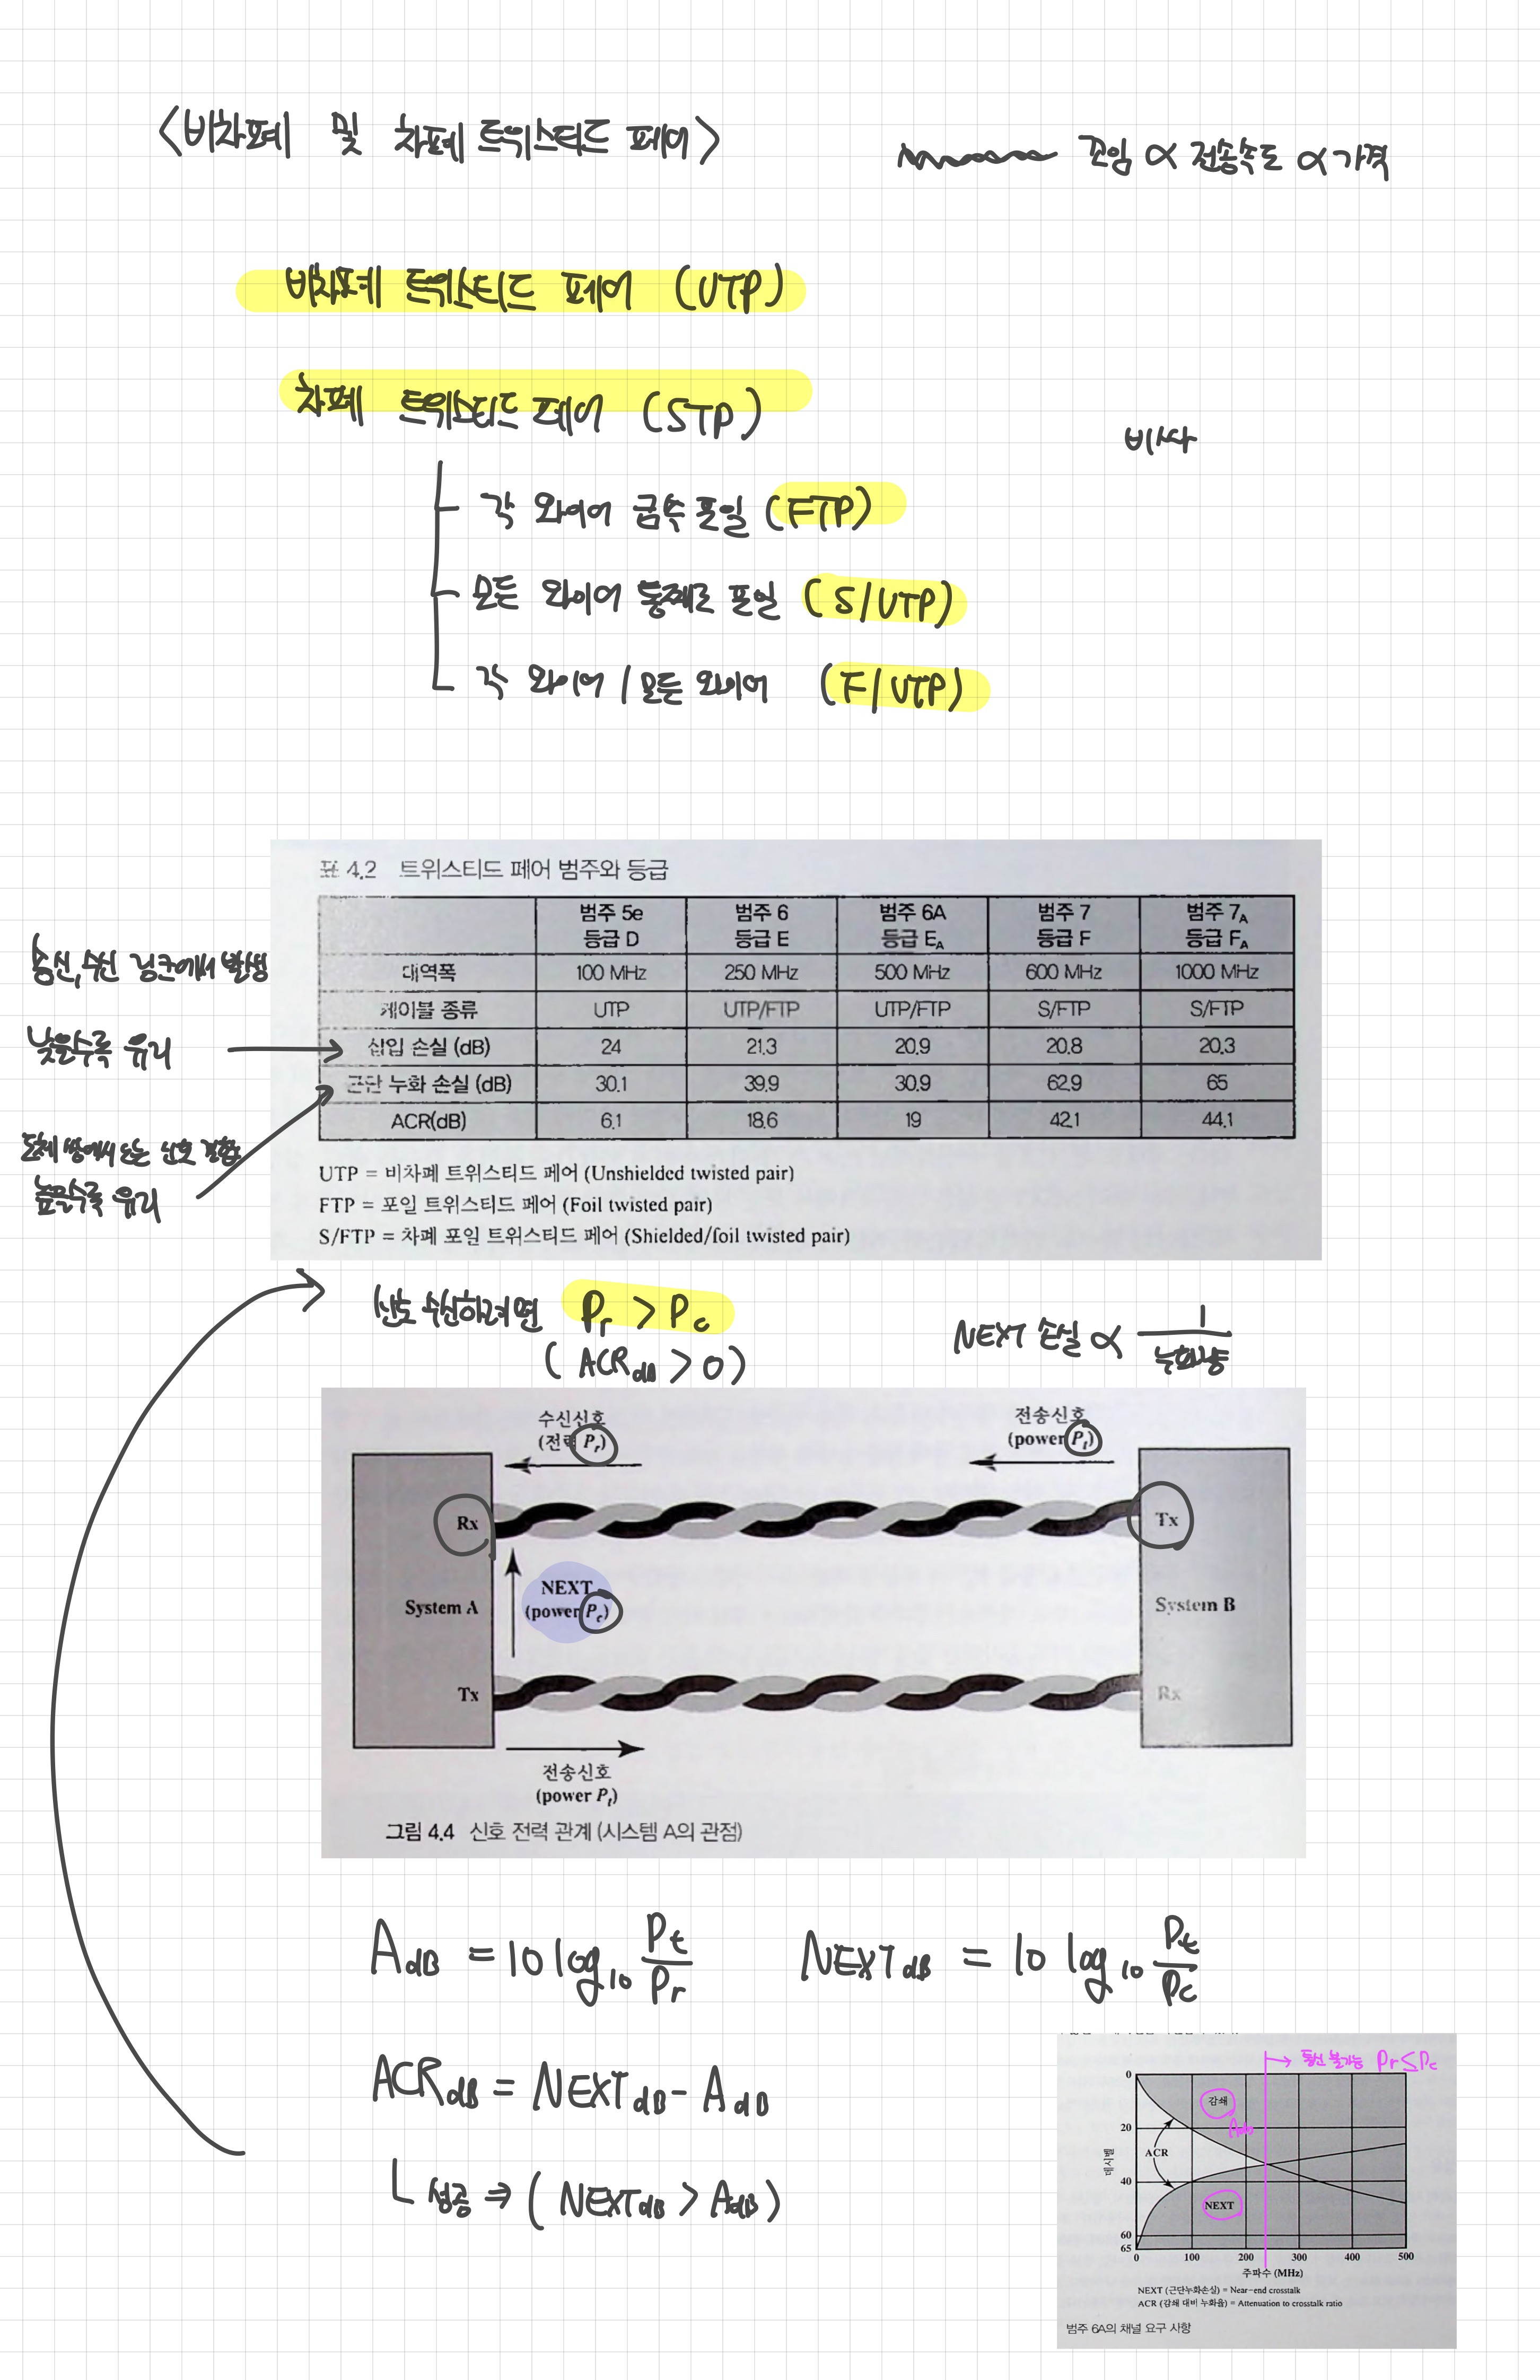 <비차폐 및 차폐 트위스티드 페어>
꼬임 ∝ 전송속도 ∝ 가격
비차폐 트위스티드 페어 (UTP)
차폐 트위스티드 페어 (STP)
비싸
각 와이어 금속 포일 (FTP)
모든 와이어 통째로 포일 (S/UTP)
각 와이어 / 모든 와이어 (F/UTP)
표 4.2 트위스티드 페어 범주와 등급
범주 5e 등급 D | 범주 6 등급 E | 범주 6A 등급 EA | 범주 7 등급 F | 범주 7A 등급 FA
대역폭 | 100 MHz | 250 MHz | 500 MHz | 600 MHz | 1000 MHz
케이블 종류 | UTP | UTP/FTP | UTP/FTP | S/FTP | S/FTP
삽입 손실 (dB) | 24 | 21.3 | 20.9 | 20.8 | 20.3
근단 누화 손실 (dB) | 30.1 | 39.9 | 30.9 | 62.9 | 65
ACR(dB) | 6.1 | 18.6 | 19 | 42.1 | 44.1
UTP = 비차폐 트위스티드 페어 (Unshielded twisted pair)
FTP = 포일 트위스티드 페어 (Foil twisted pair)
S/FTP = 차폐 포일 트위스티드 페어 (Shielded/foil twisted pair)
송신, 수신 링크에서 발생
낮을수록 유리
도체 쌍에서 도는 신호 결합
높을수록 유리
신호 수신하려면 Pr > Pc
(ACRdB > 0)
NEXT 손실 ∝ 1/누화량
수신신호
(전력 Pr)
전송신호
(power Pt)
Rx
Tx
NEXT
(power Pc)
System A
System B
Tx
Rx
전송신호
(power Pt)
그림 4.4 신호 전력 관계 (시스템 A의 관점)
AdB = 10 log10 Pt/Pr
NEXTdB = 10 log10 Pt/Pc
ACRdB = NEXTdB - AdB
성공 ⇒ (NEXTdB > AdB)
→ 통신 불가능 Pr ≤ Pc
감쇄
AdB
ACR
NEXT
데시벨
0
20
40
60
65
0 100 200 300 400 500
주파수 (MHz)
NEXT (근단누화손실) = Near-end crosstalk
ACR (감쇄 대비 누화율) = Attenuation to crosstalk ratio
범주 6A의 채널 요구 사항